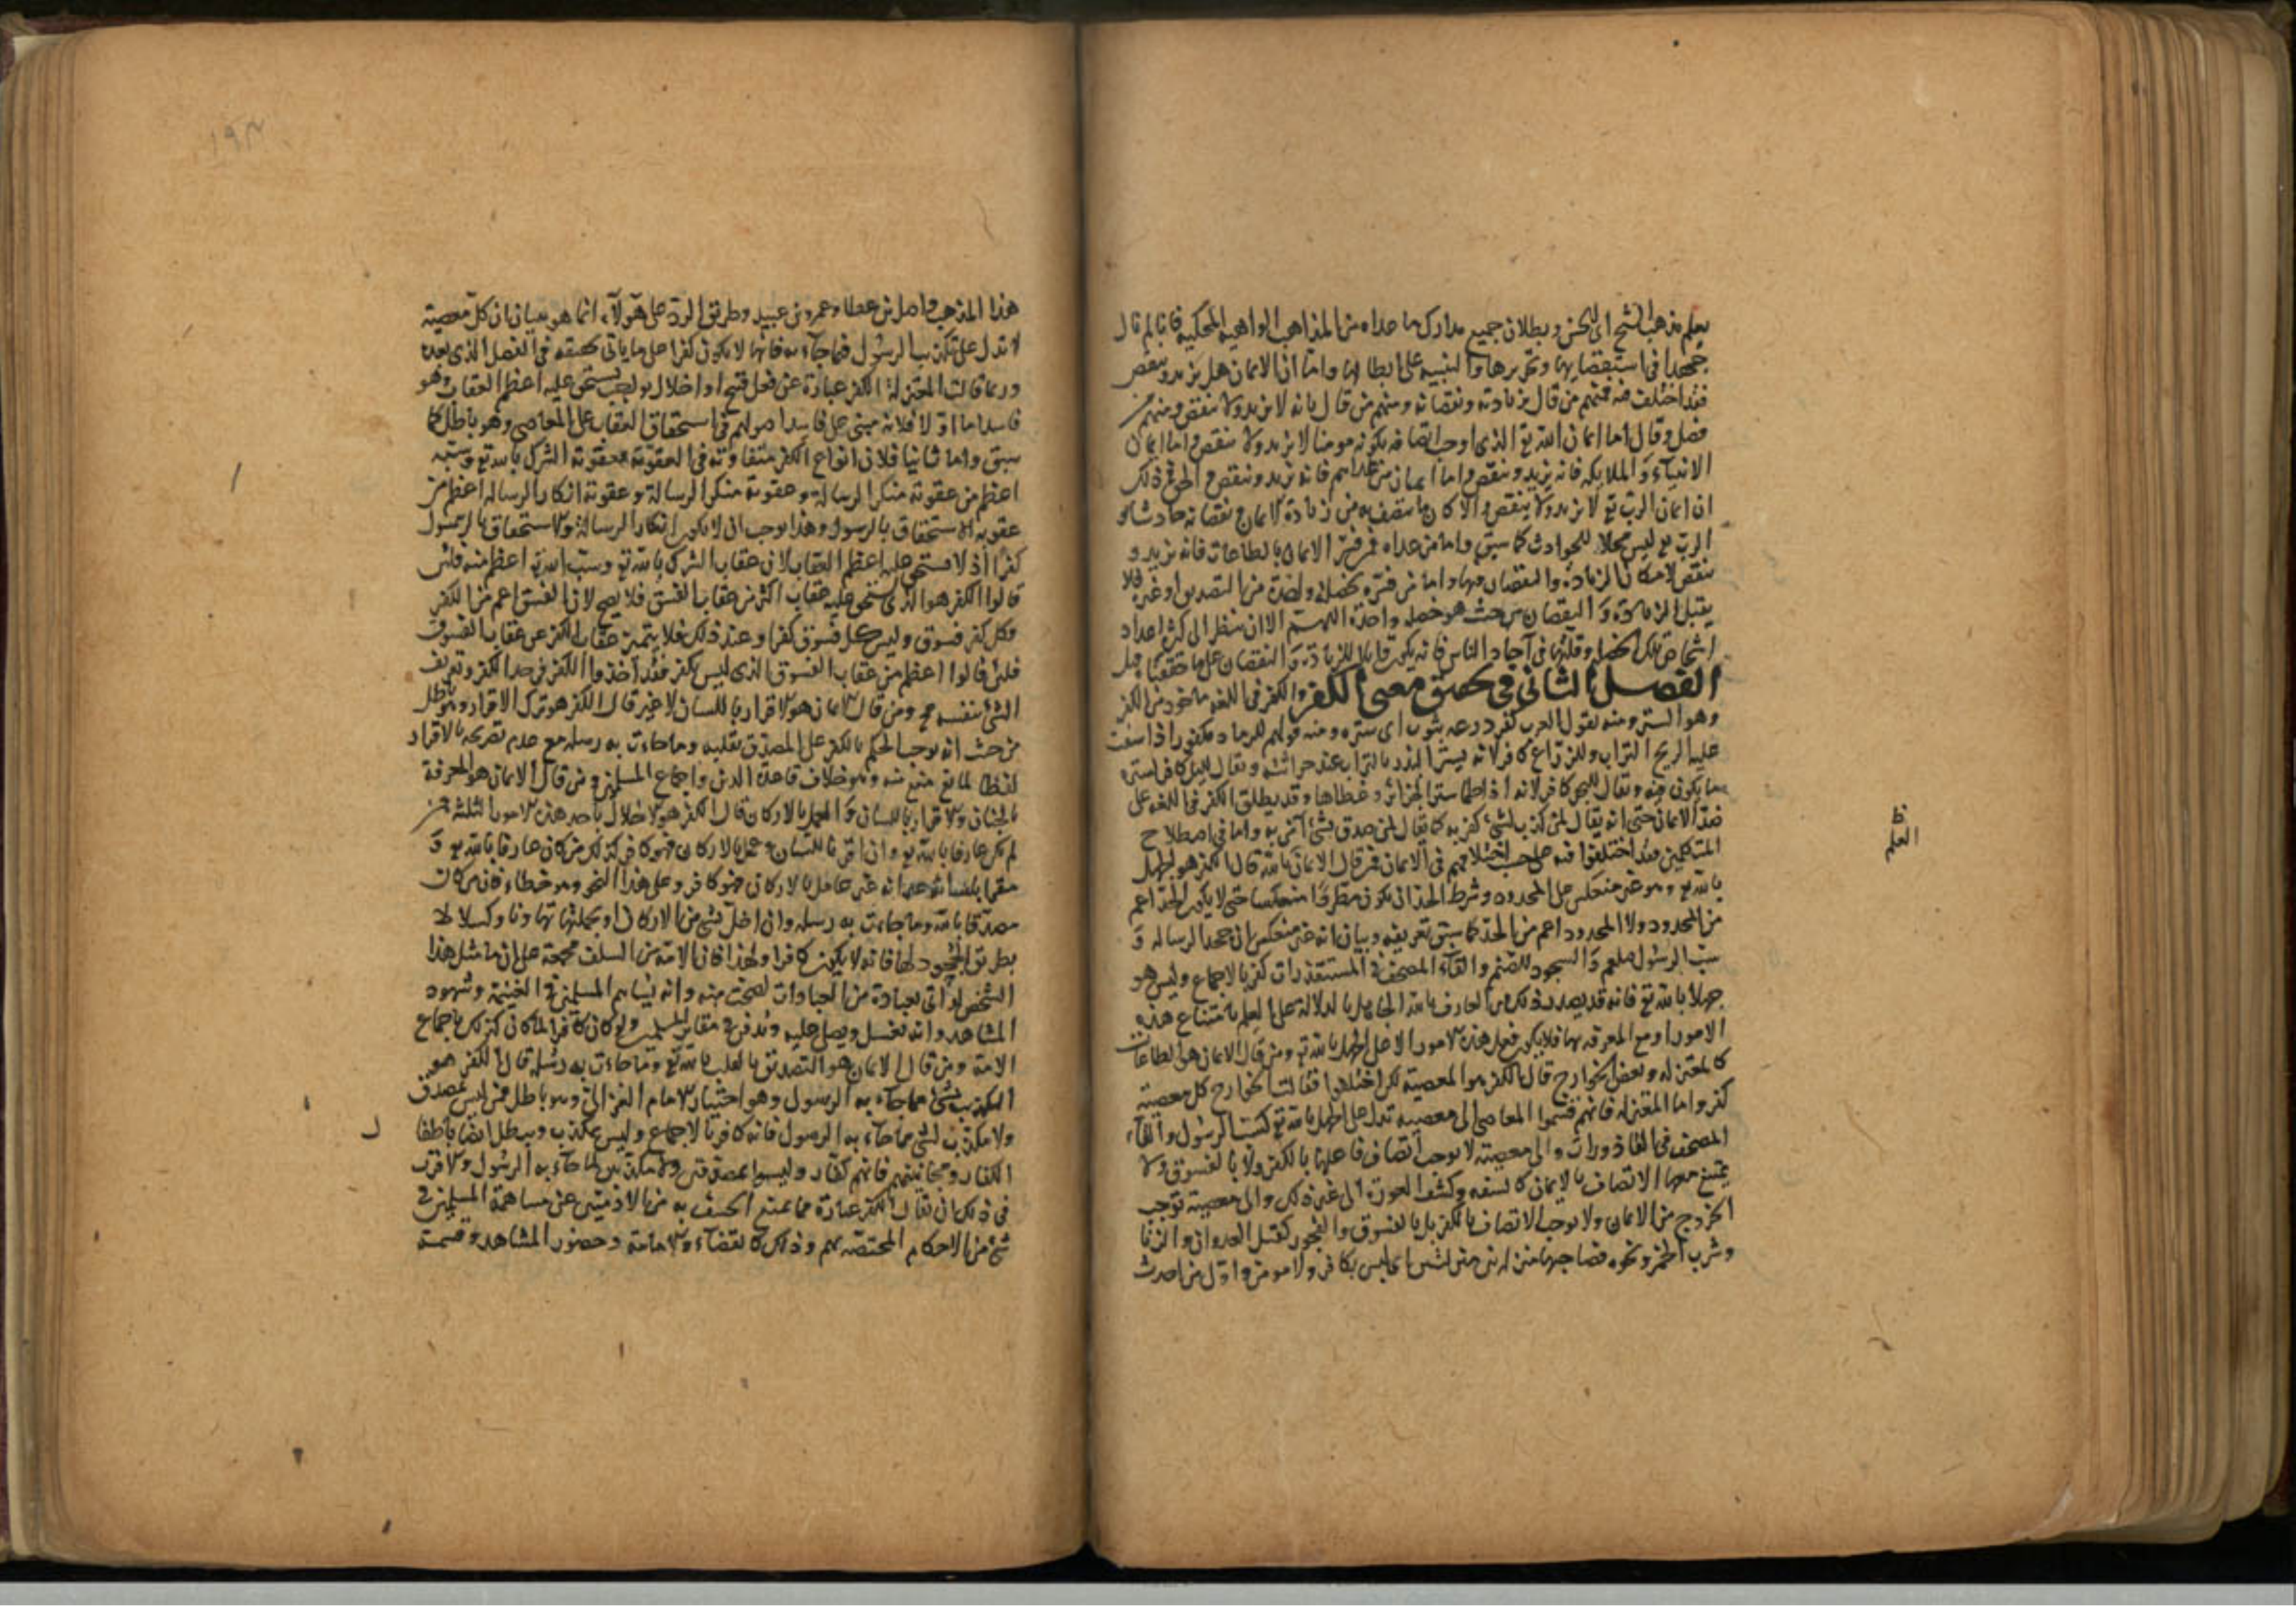 يعلم مذهب الشيخ ابى الحسن وبطلان جميع مدارك ما عداه من المذاهب الواهية المحكيه فانا لم نال
جهدا فى استقصايها وتحريرها والتنبيه على ابطالها واما ان الايمان هل يزيد وينقص
فقد اختلف فيه فمنهم من قال بزيادته ونقصانه ومنهم من قال بانه لا يزيد ولا ينقص ومنهم من
فصل وقال اما ايمان الله تع الذى اوجب اتصافه بكونه مومنا لا يزيد ولا ينقص واما ايمان
الانبياء والملايكه فانه يزيد وينقص واما ايمان من عداهم فانه يزيد وينقص والحق فى ذلك
ان ايمان الرب تع لا يزيد ولا ينقص والا كان ما يتصف به من زيادة الايمان ونقصانه حادثا و
الرب تع ليس محلا للحوادث كما سبق واما من عداه فمن فسر الايمان بالطاعات فانه يزيد و
ينقص لامكان الزيادة والنقصان فيها واما من فسره بخصلة واحدة من التصديق او غيره فلا
يقبل الزيادة والنقصان من حيث هو خصلة واحدة اللهم الا ان ينظر الى كثرة اعداد
اشخاص تلك الخصلة وقلتها فى آحاد الناس فانه يكون قابلا للزيادة والنقصان على ما حققنا قبل
الفصل الثانى فى تحقيق معنى الكفر والكفر فى اللغه ماخوذ من الكفر
وهو الستر ومنه يقول العرب كفر درعه بثوب اى ستره ومنه قولهم للرماد مكفور اذا سفت
عليه الريح التراب وللزراع كافر لانه يستر البذر بالتراب عند حراثته ويقال لليل كافر لستره
ما يكون فيه ويقال للبحر كافر لانه اذا طما ستر الجزائر وغطاها وقد يطلق الكفر فى اللغه على
ضد الايمان حتى انه يقال لمن كذب بشئ كفر به كما يقال لمن صدق بشئ آمن به واما فى اصطلاح
المتكلمين فقد اختلفوا فيه على حسب اختلافهم فى الايمان فمن قال الايمان بالله قال الكفر هو الجهل
بالله تع وهو غير منعكس على المحدود وشرط الحد ان يكون مطردا منعكسا حتى لا يكون الحد اعم
من المحدود ولا المحدود اعم من الحد كما سبق تعريفه وبيان انه غير منعكس ان جحد الرساله و
سب الرسول صلعم والسجود للصنم والقاء المصحف فى المستقذرات كفر بالاجماع وليس هو
جهلا بالله تع فانه قد يصدر ذلك من العارف بالله الجاهل بالدلالة على العلم بامتناع هذه
الامور او مع المعرفه بها فلا يكون فعل هذه الامور الا على الجهل بالله تع ومن قال الايمان هو الطاعات
كالمعتزله وبعض الخوارج قال بالكفر هو المعصية لكن اختلفوا فقالت الخوارج كل معصية
كفر واما المعتزله فانهم قسموا المعاصى الى معصيه تدل على الجهل بالله تع كسب الرسول والقاء
المصحف فى القاذورات والى معصية لا توجب اتصاف فاعلها بالكفر ولا بالفسوق ولا
يمتنع معها الاتصاف بالايمان كالسفه وكشف العورة الى غير ذلك والى معصية توجب
الخروج من الايمان ولا توجب الاتصاف بالكفر بل بالفسوق والفجور كقتل العدوان والزنا
وشرب الخمر ونحوه فصاحبها منزله بين منزلتين اى ليس بكافر ولا مومن واول من احدث
ظ
العلم
هذا المذهب واصل بن عطا وعمرو بن عبيد وطريق الرد على هولاء انما هو ببيان ان كل معصية
لا تدل على تكذيب الرسول فيما جاء به فانها لا تكون كفرا على ما ياتى تحقيقه فى الفصل الذى بعده
وربما قالت المعتزلة الكفر عبارة عن فعل قبيح او اخلال بواجب يستحق عليه اعظم العقاب وهو
فاسد اما اولا فلانه مبنى على فاسد اصولهم فى استحقاق العقاب على المعاصى وهو باطل كما
سبق واما ثانيا فلان انواع الكفر متفاوته فى العقوبة فعقوبة الشرك بالله تع وسبه
اعظم من عقوبة منكر الرسالة وعقوبة انكار الرسالة اعظم من
عقوبة الاستخفاف بالرسول وهذا يوجب ان لا يكون انكار الرسالة ولا استخفاف بالرسول
كفرا اذ لا يستحق عليه اعظم العقاب لان عقاب الشرك بالله تع وسب الله تع اعظم منه فلئن
قالوا الكفر هو الذى يستحق عليه عقاب اكثر من عقاب الفسق فلا يصح لان الفسق اعم من الكفر
فكل كفر فسوق وليس كل فسوق كفرا وعند ذلك فلا يتميز عقاب الكفر عن عقاب الفسوق
فلئن قالوا اعظم من عقاب الفسوق الذى ليس بكفر فقد اخذوا الكفر فى حد الكفر وتعريف
الشئ بنفسه مح ومن قال الايمان هو الاقرار باللسان لا غير قال الكفر هو ترك الاقرار وهو باطل
من حيث انه يوجب الحكم بالكفر على المصدق بقلبه وما جاءت به رسله مع عدم تصريحه بالاقرار
لفظا لمانع منع منه وهو خلاف قاعدة الدين واجماع المسلمين ومن قال الايمان هو المعرفة
بالجنان والاقرار باللسان والعمل بالاركان قال الكفر هو الاخلال باحد هذه الامور الثلثة فمن
لم يكن عارفا بالله تع وان اقر باللسان وعمل بالاركان فهو كافر وكذلك من كان عارفا بالله تع و
مقرا بلسانه غير انه غير عامل بالاركان فهو كافر وعلى هذا النحو وهو خطاء فان من كان
مصدقا بالله وما جاءت به رسله وان اخل بشئ من الاركان او بجملتها تهاونا وكسلا لا
بطريق الجحود لها فانه لا يكون كافرا ولهذا فان الامة من السلف مجمعة على ان ما مثل هذا
الشخص لو اتى بعبادة من العبادات لصحت منه وانه يساهم المسلمين فى الغنيمة وشهود
المشاهد وانه يغسل ويصلى عليه ويدفن فى مقابر المسلمين ولو كان كافرا لما كان كذلك باجماع
الامة ومن قال الايمان هو التصديق بالقلب بالله تع وما جاءت به رسله قال الكفر هو
التكذيب بشئ مما جاء به الرسول وهو اختيار الامام الغزالى وهو باطل فمن ليس بمصدق
ولا مكذب بشئ مما جاء به الرسول فانه كافر بالاجماع وليس بمكذب ويبطل ايضا باطفال
الكفار ومجانينهم فانهم كفار وليسوا بمصدقين ولا مكذبين لما جاء به الرسول والاقرب
فى ذلك ان يقال الكفر عبارة عما يمتنع المتصف به من الادميين عن مساهمة المسلمين فى
شئ من الاحكام المختصه بهم وذلك كالقضاء والامامة وحضور المشاهد وقسمة